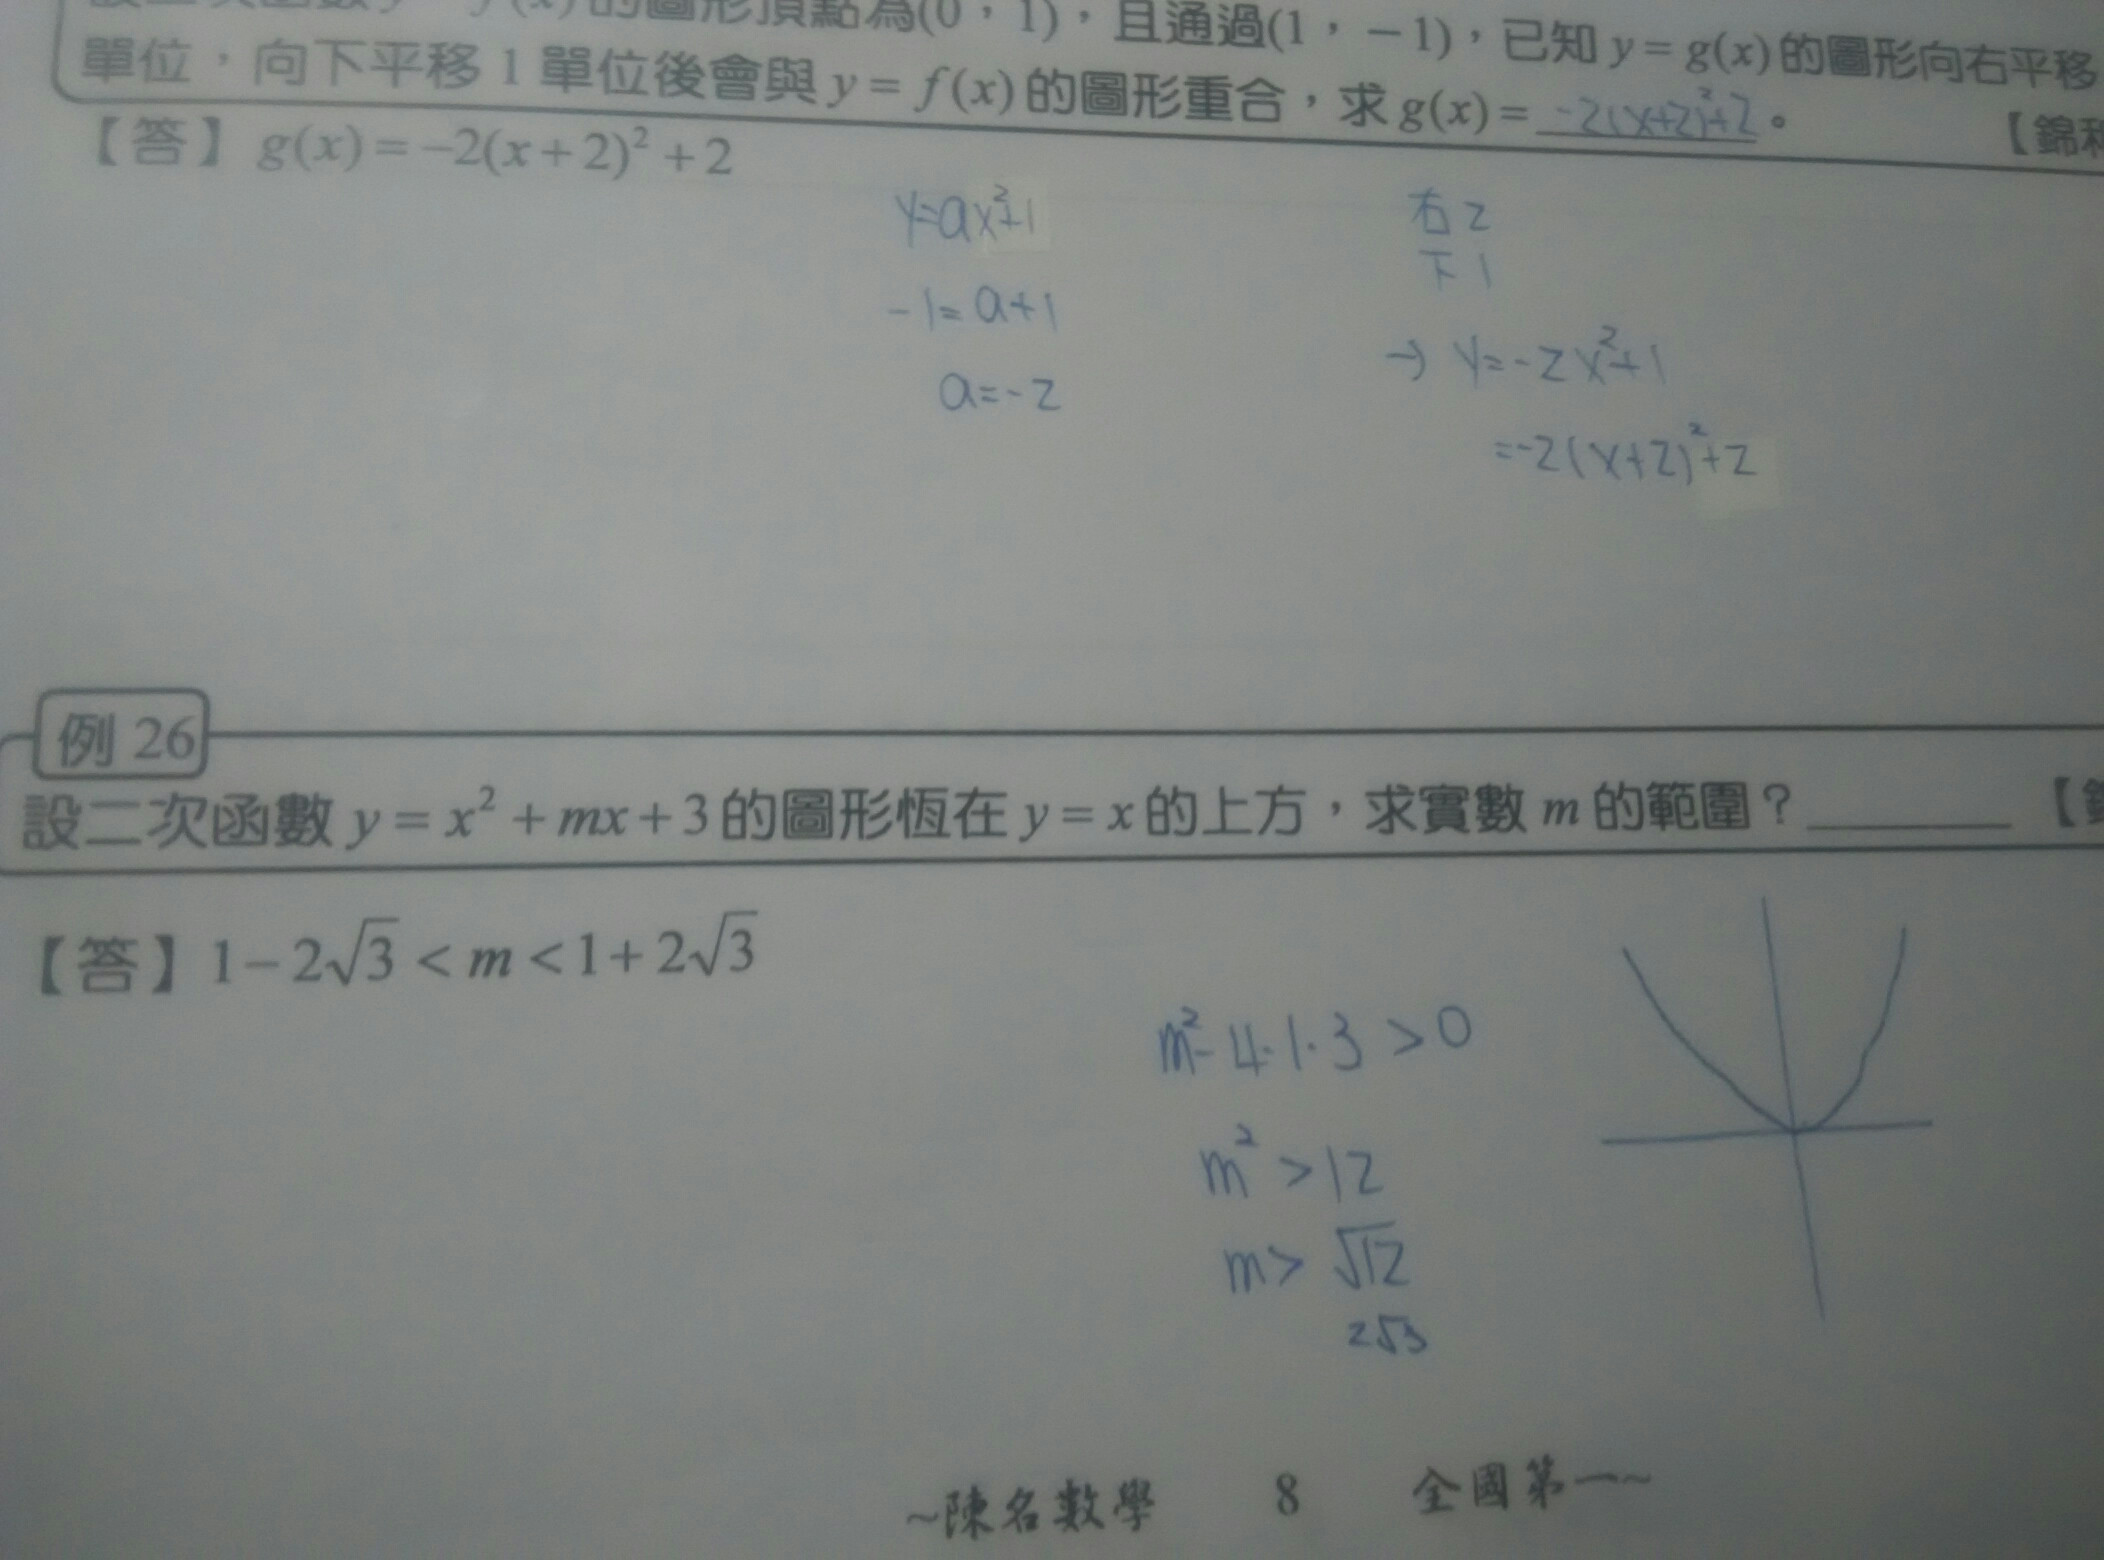 的圖形頂點為(0，1)，且通過(1，-1)，已知 y = g(x) 的圖形向右平移
單位，向下平移 1 單位後會與 y = f(x) 的圖形重合，求 g(x) = -2(x+2)²+2 。
【答】g(x) = -2(x+2)² + 2
【錦和
y=ax²+1
-1=a+1
a=-2
右2
下1
→ y=-2x²+1
=-2(x+2)²+2
例 26
設二次函數 y = x² + mx + 3 的圖形恆在 y = x 的上方，求實數 m 的範圍？________ 【
【答】1-2√3 < m < 1+2√3
m²-4·1·3>0
m²>12
m>√12
2√3
~陳名數學 8 全國第一~